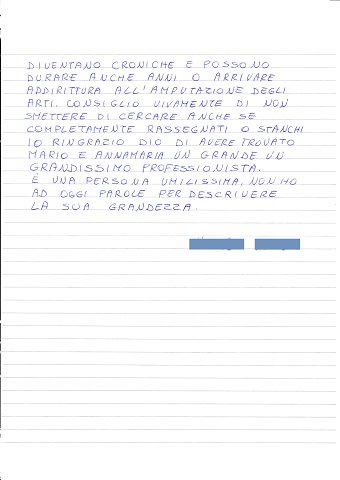 DIVENTANO CRONICHE E POSSONO
DURARE ANCHE ANNI O ARRIVARE
ADDIRITTURA ALL'AMPUTAZIONE DEGLI
ARTI. CONSIGLIO VIVAMENTE DI NON
SMETTERE DI CERCARE ANCHE SE
COMPLETAMENTE RASSEGNATI O STANCHI
IO RINGRAZIO DIO DI AVERE TROVATO
MARIO E ANNAMARIA UN GRANDE UN
GRANDISSIMO PROFESSIONISTA.
È UNA PERSONA UMILISSIMA, NON HO
AD OGGI PAROLE PER DESCRIVERE
LA SUA GRANDEZZA.